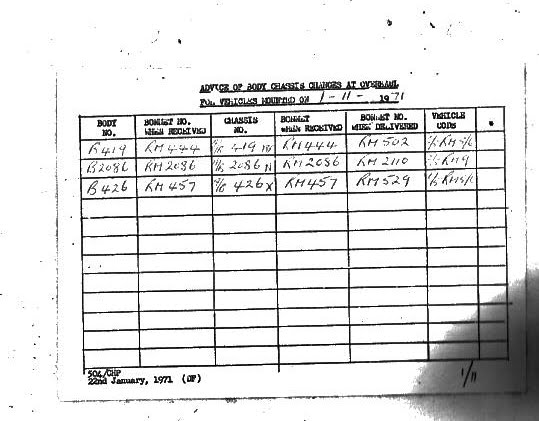 ADVICE OF BODY CHASSIS CHANGES AT OVERHAUL
FOR VEHICLES MOUNTED ON 1-11- 1971
BODY NO. BONNET NO. WHEN RECEIVED CHASSIS NO. BONNET WHEN RECEIVED BONNET NO. WHEN DELIVERED VEHICLE CODE
B419 RM444 419 RM444 RM502
B2086 RM2086 2086 N RM2086 RM2110
B426 RM457 426 X RM457 RM529
504/CHP
22nd January, 1971 (DF)
1/11